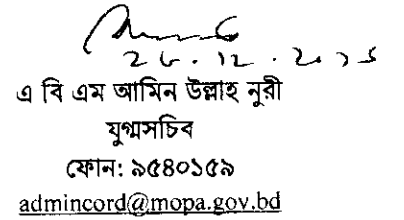 এ বি এম আমিন উল্লাহ নুরী
যুগ্মসচিব
ফোন: ৯৫৪০১৫৯
admincord@mopa.gov.bd